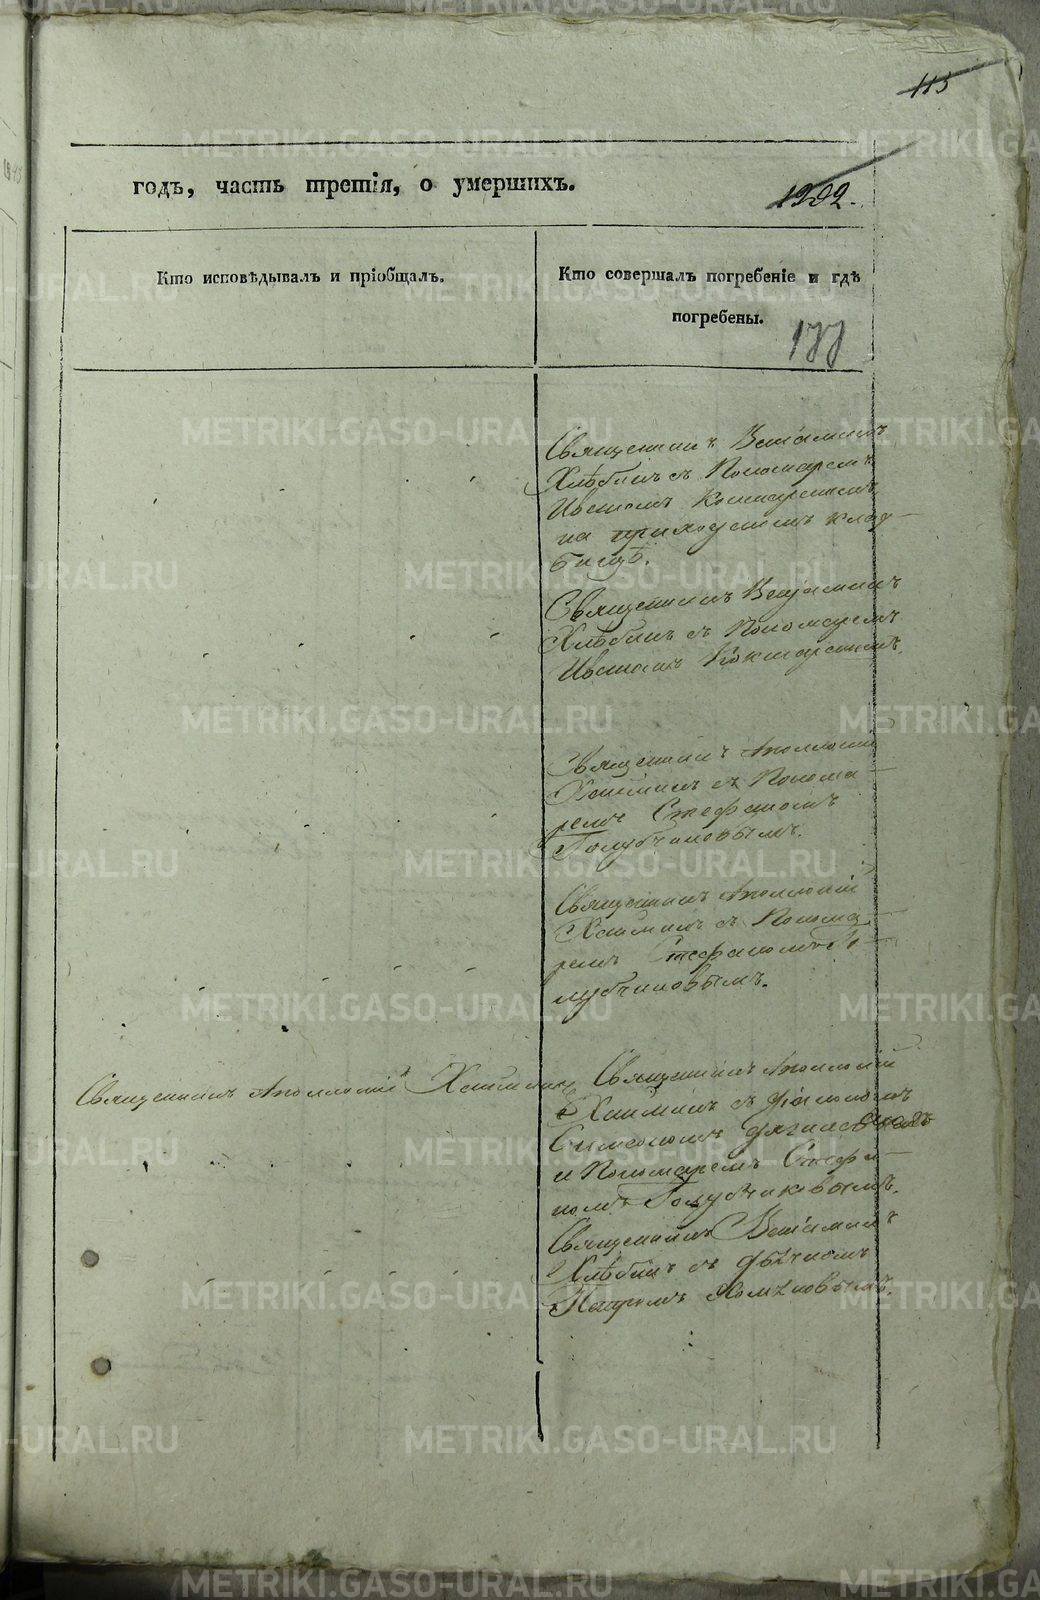 115
годъ, часть третія, о умершихъ.
1292.
Кто исповѣдывалъ и пріобщалъ.
Кто совершалъ погребеніе и гдѣ
погребены.
177
Священникъ Веніаминъ
Хлѣбинъ съ Пономаремъ
на приходскомъ клад-
бищѣ.
Священникъ Веніаминъ
Хлѣбинъ съ Пономаремъ
Священникъ Аполлоній
съ Понома-
ремъ Стефаномъ
Голубчиковымъ.
Священникъ Аполлоній
съ Понома-
ремъ Стефаномъ Го-
лубчиковымъ.
Священникъ Аполлоній
Священникъ Аполлоній
съ Діакономъ
Симеономъ
и Пономаремъ Стефа-
номъ Голубчиковымъ.
Священникъ Веніаминъ
Хлѣбинъ съ Дьячкомъ
Петромъ
METRIKI.GASO-URAL.RU